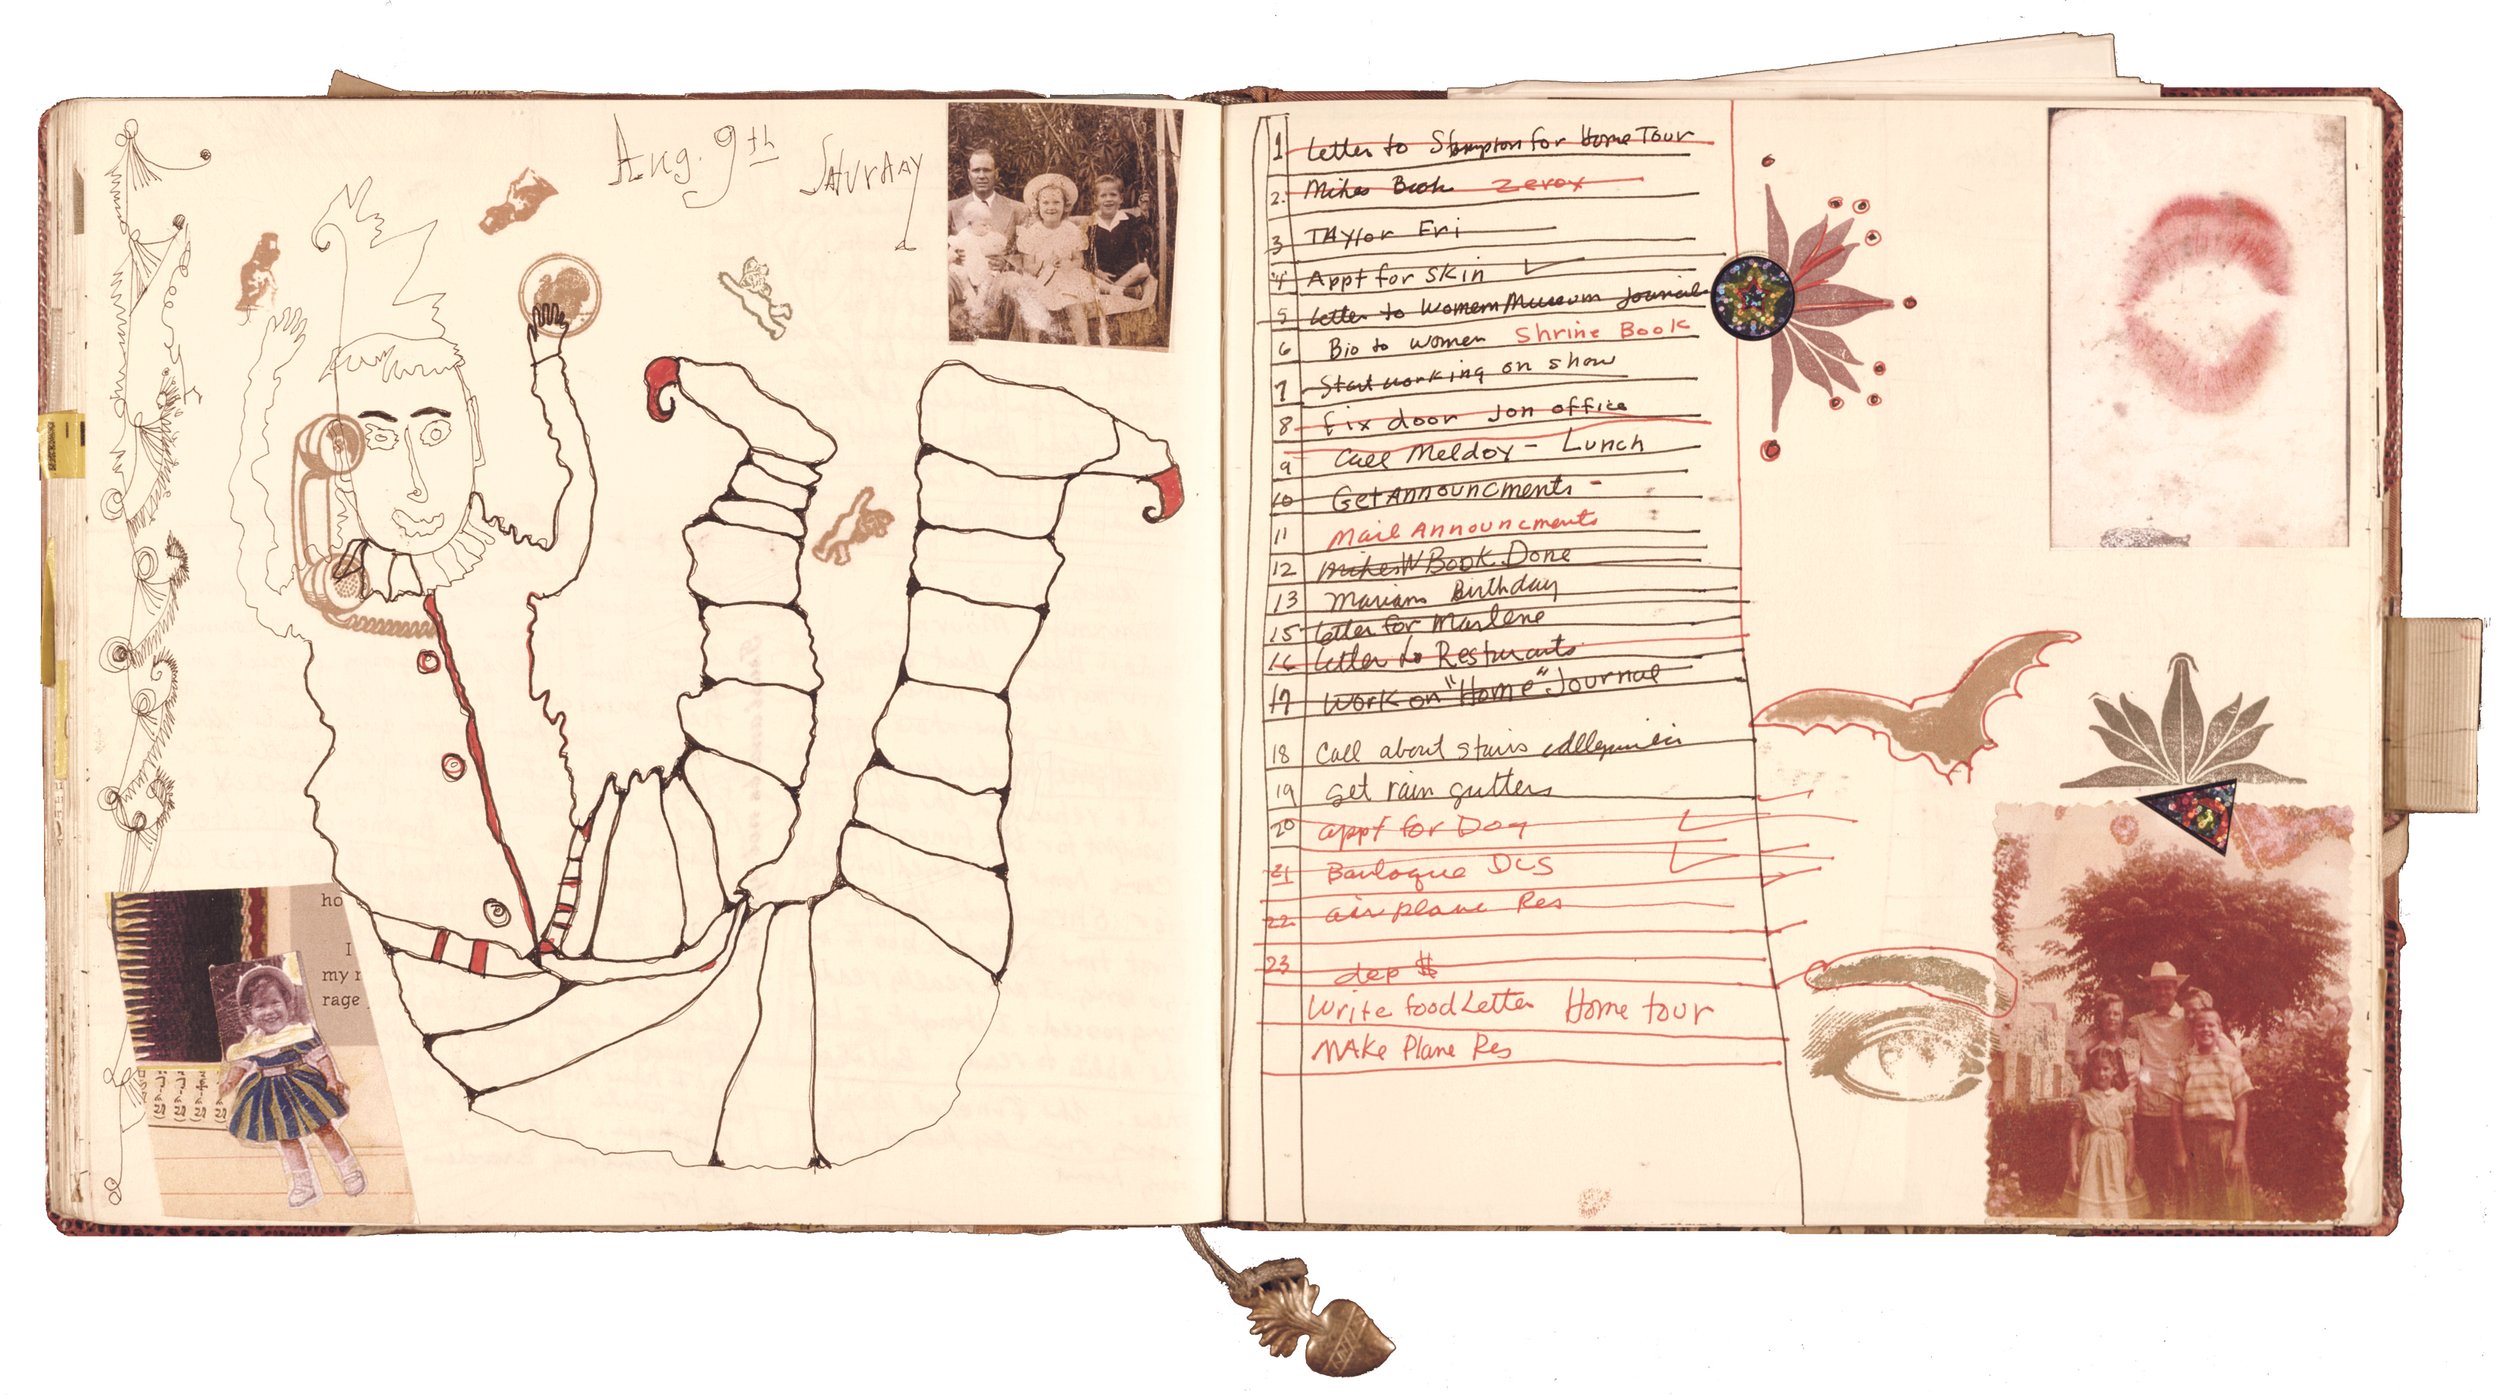 Aug. 9th Saturday
ho
I
my r
rage
1 Letter to Stompton for Home Tour
2. Mikes Book Zerox
3 TAylor Fri
4 Appt for skin
5 Letter to Women Museum Journal
6 Bio to women Shrine Book
7 Start working on show
8 fix door Jon office
9 Call Meldoy - Lunch
10 Get Announcments -
11 Mail Announcments
12 Mikes W Book Done
13 Marians Birthday
15 Letter for Marlene
16 Letter to Resturants
17 Work on "Home" Journal
18 Call about stairs
19 get rain gutters
20 appt for Dog
21 Barloque DCS
22 airplane Res
23 dep $
Write food Letter Home tour
MAKe Plane Res